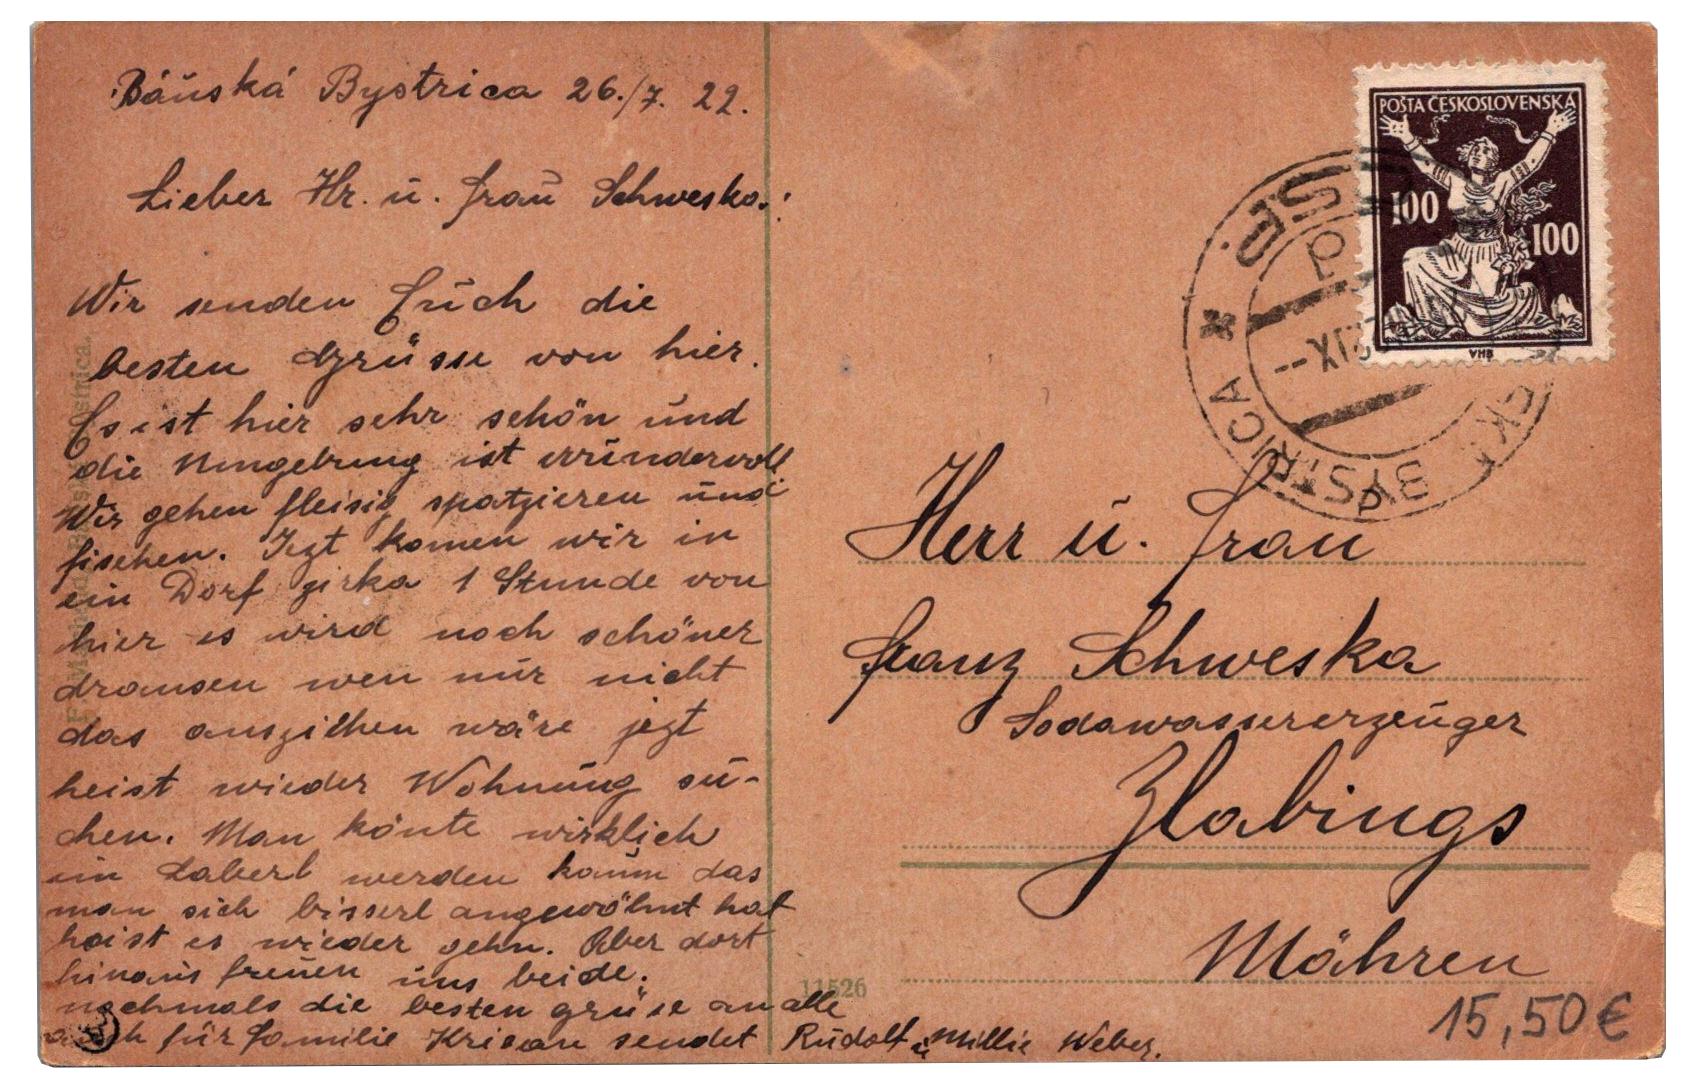 Báňská Bystrica 26./7. 22.
Lieber Hr. u. Frau Schweska.!
Wir senden Euch die
besten Grüsse von hier.
Es ist hier sehr schön und
die Umgebung ist wundervoll
Wir gehen fleisig spatzieren und
fischen. Jezt komen wir in
ein Dorf zirka 1 Stunde von
hier es wird noch schöner
drausen wen nur nicht
das ausziehen wäre jezt
heist wieder Wohnung su-
chen. Man könte wirklich
ein Laberl werden kaum das
man sich bisserl angewöhnt hat
heist es wieder gehn. Aber dort
hinaus freuen uns beide.
nochmals die besten grüse an alle
auch für Familie Krican sendet Rudolf u Millie Weber.
POŠTA ČESKOSLOVENSKÁ
100
100
VHB
BYSTRICA
Herr u. Frau
Franz Schweska
Sodawassererzeuger
Zlabings
Mähren
11526
15,50€